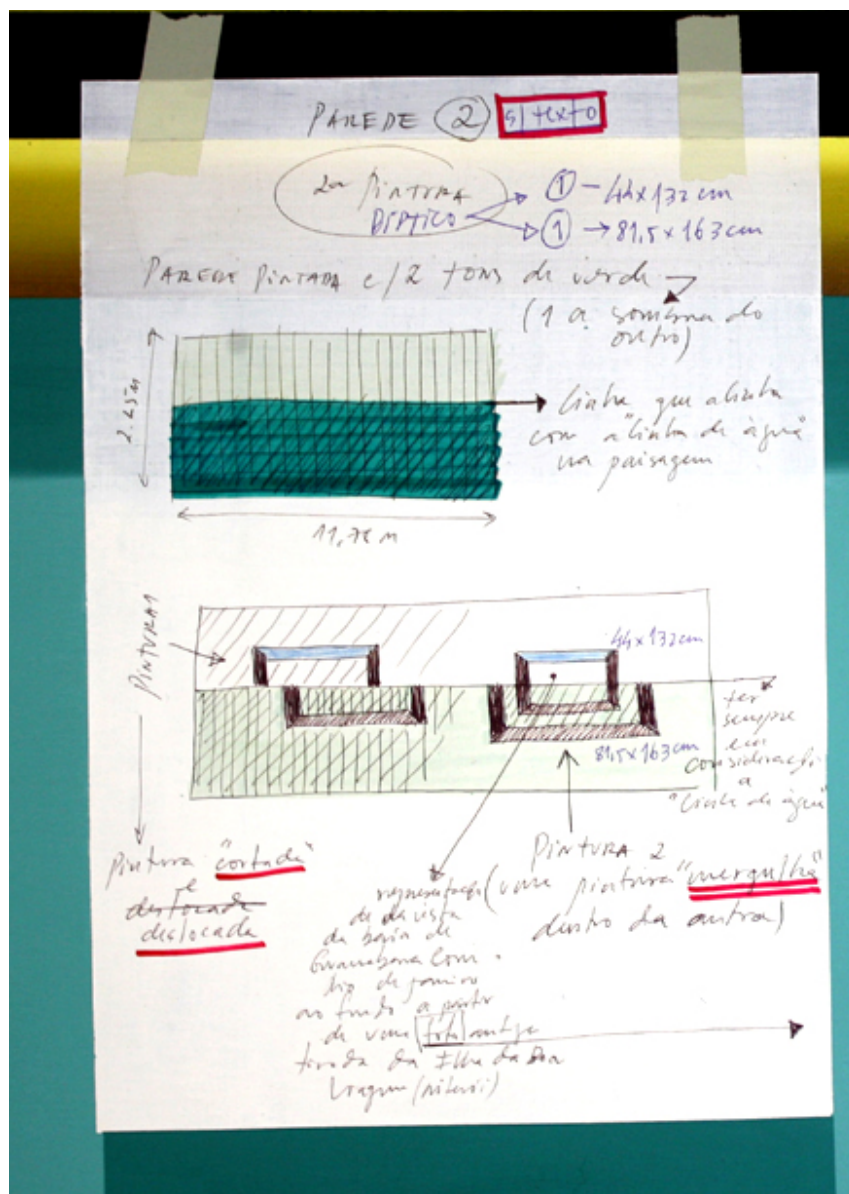 PAREDE 2 s/ texto
2a PINTURA ① - 44x132 cm
DÍPTICO ① → 81,5x163 cm
PAREDE PINTADA c/2 tons de verde
(1 a sombra do
outro)
2.45m
linha que alinha
com a "linha de água"
na paisagem
11,78 m
PINTURA 1
44x132cm
81,5x163cm
ter
sempre
em
consideração
a
"linha de água"
Pintura "cortada"
e
destocada
deslocada
PINTURA 2
(uma pintura "mergulha"
dentro da outra)
representação
de da vista
da baía de
Guanabara com o
Rio de Janeiro
ao fundo a partir
de uma foto antiga
tirada da Ilha da Boa
Viagem (Niterói)